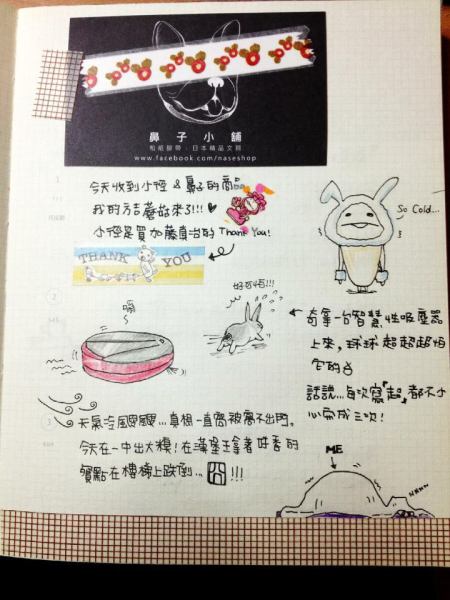 鼻子小舖
和紙膠帶．日本精品文具
www.facebook.com/naseshop
今天收到小徑 & 鼻子的商品
我的方吉蘑菇來了!!! ♥
小徑是買加藤真治的 Thank You!
THANK YOU
So Cold...
好可怕!!!
嗡
奇拿一台智慧性吸塵器
上來，球球超超超怕
它的
話說...每次寫「超」都不小
心寫成三次!
天氣冷颼颼...真想一直窩被窩不出門。
今天在一中出大糗! 在漢堡王拿著好香的
餐點在樓梯上跌倒... 囧!!!
ME